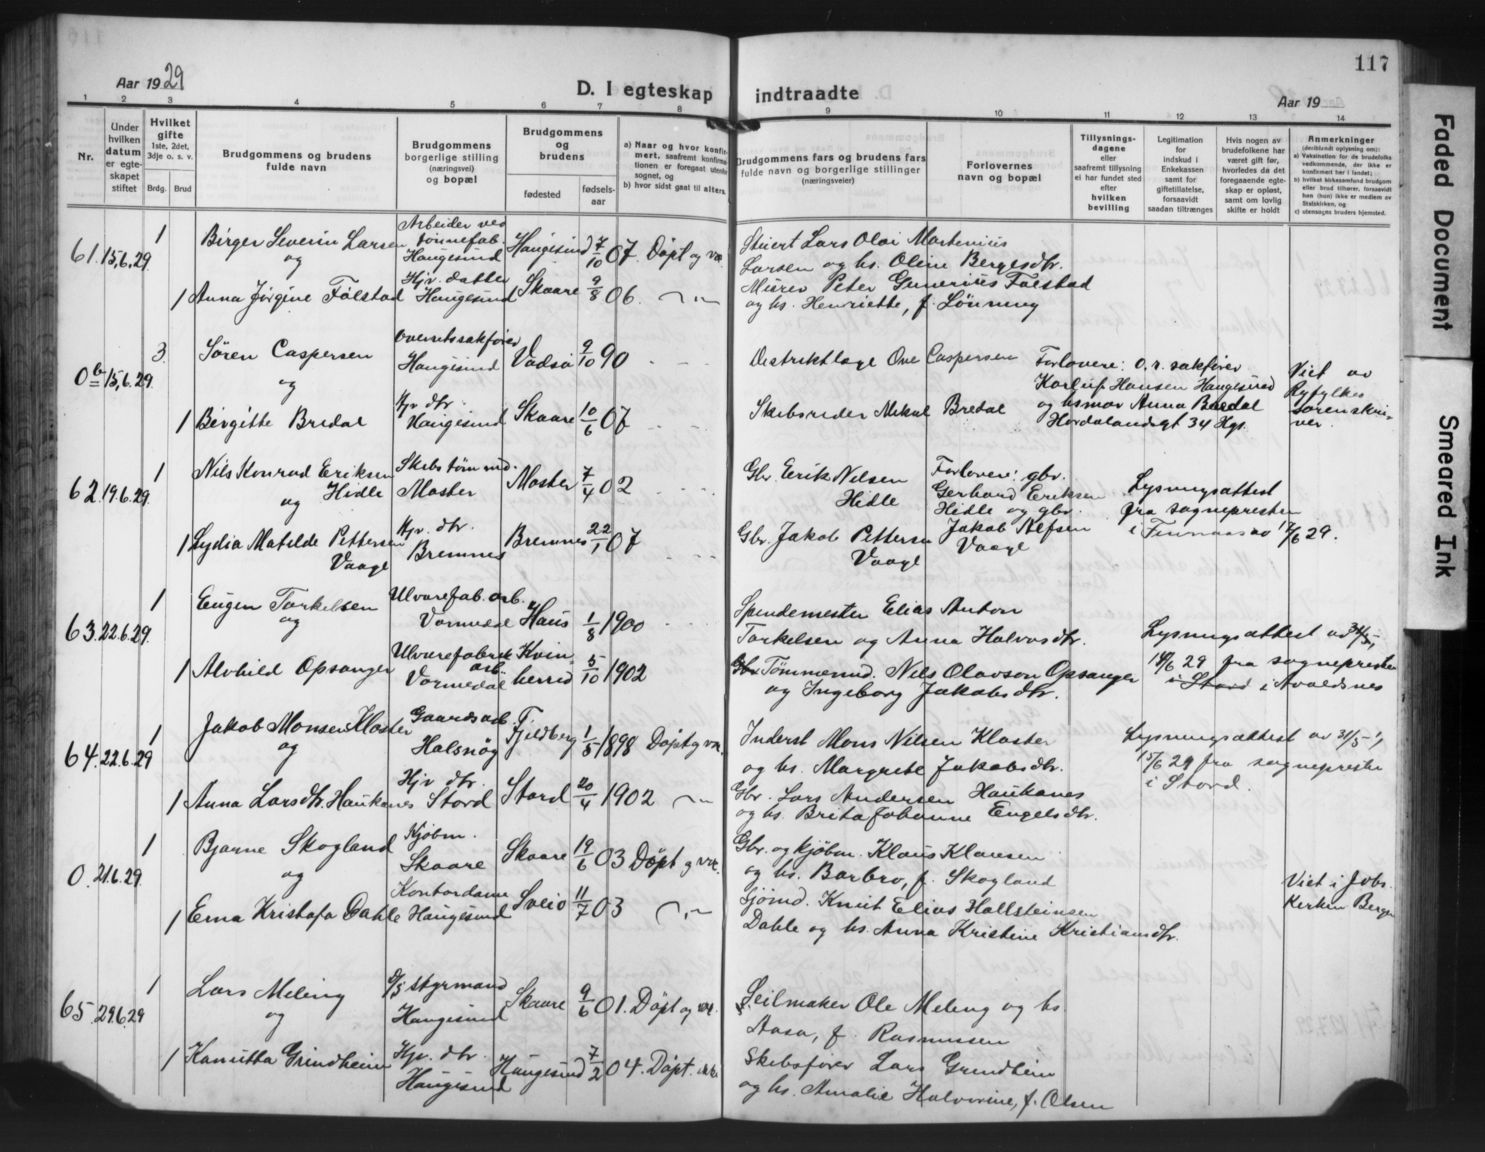 117
Aar 1929
D. I egteskap indtraadte
Aar 19
1 2 3 4 5 6 7 8 9 10 11 12 13 14
Nr.
Under hvilken datum er egte-skapet stiftet
Hvilket gifte 1ste, 2det, 3dje o. s. v.
Brdg. Brud
Brudgommens og brudens fulde navn
Brudgommens borgerlige stilling (næringsvei) og bopæl
Brudgommens og brudens
fødested
fødsels-aar
a) Naar og hvor konfir-mert, saafremt konfirma-tionen er foregaat utenfor sognet, og
b) hvor sidst gaat til alters.
Brudgommens fars og brudens fars fulde navn og borgerlige stillinger (næringsveier)
Forlovernes navn og bopæl
Tillysnings-dagene eller saafremt tillysning ei har fundet sted efter hvilken bevilling
Legitimation for indskud i Enkekassen samt for giftetillatelse, forsaavidt saadan tiltrænges
Hvis nogen av brudefolkene har været gift før, hvorledes da det foregaaende egte-skap er opløst, samt om lovlig skifte er holdt
Anmerkninger
61. 15.6.29. 1 Birger Severin Larsen
og
Arbeider ved tønnefab. Haugesund
Haugesund 7/10 07. Døpt og vac.
Larsen og hs. Oline Bergesdtr.
1 Anna Jørgine Følstad
Hjv. datter Haugesund
Skaare 9/8 06.
Murer Peter Gunerius Følstad
og hs. Henriette, f. Lønning
0 b 15.6.29. 3 Søren Caspersen
og
Overretssakfører Haugesund
Vadsø 9/10 90
Distriktslæge Ove Caspersen
Forlovere: o.r. sakfører
Haugesund
og hsmor Anna Bredal
Hordalandsgt 34 Hgs.
Viet av
Ryfylkes
sorenskri-
ver.
1 Birgitte Bredal
Hjv dtr. Haugesund
Skaare 10/6 07
Skibsreder Mikal Bredal
62. 19.6.29. 1 Nils Konrad Eriksen
og Hidle
Skibstømmd. Moster
Moster 7/4 02
Gbr. Erik Nilsen
Hidle
Forlovere: gbr.
Gerhard Eriksen
Hidle og gbr.
Jakob Alfsen
Vaage
Lysningsattest
fra sognepresten
i Finnaas av 17/6 29.
1 Lydia Matilde Pettersen
Vaage
Hjv. dtr. Bremnes
Bremnes 22/1 07
Gbr. Jakob Pettersen
Vaage
63. 22.6.29. 1 Eugen Torkelsen
og
Ulvarefab. arb. Vormedal
Haus 1/8 1900
Spendemester Elias Anton
Torkelsen og Anna Halvorsdtr.
Lysningsattest av 31/5,
14/6 29 fra sognepresten
i Stord i Avaldsnes
1 Alvhild Opsanger
Ulvarefabrik arb. Vormedal
Kvin herred 5/10 1902
Gbr Tømmermd. Nils Olavson Opsanger
og Ingeborg Jakobsdtr.
64. 22.6.29 1 Jakob Monsen Kloster
og
Gaardsarb. Halsnøy
Fjeldberg 1/5 1898 Døpt og vac.
Inderst Mons Nilsen Kloster
og hs. Margrete Jakobsdtr.
Lysningsattest av 31/5 -
15/6 29 fra sognepresten
i Stord.
1 Anna Larsdtr. Haukanes
Hjv dtr. Stord
Stord 20/4 1902
Gbr. Lars Andersen Haukanes
og hs. Brita Johanne Engelsdtr.
0. 21.6.29. 1 Bjarne Skogland
og
Kjøbm. Skaare
Skaare 19/6 03 Døpt og vac.
Gbr. og kjøbm. Klaus Klausen
og hs. Barbro, f. Skogland
Viet i Johs.
kirken Bergen
1 Erna Kristofa Dahle
Kontordame Haugesund
Sveio 11/7 03
Knut Elias Hallsteinsen
Dahle og hs. Anna Kristine Kristiansdtr.
65. 29.6.29 1 Lars Meling
og
D/S styrmand Haugesund
Skaare 9/6 01. Døpt og vac.
Seilmaker Ole Meling og hs
Aasa, f. Rasmussen
1 Kamitta Grindheim
Hjv. dtr. Haugesund
Haugesund 7/2 04. Døpt.
Skibsfører Lars Grindheim
og hs. Amalie Halvorine, f. Olsen
Faded Document
Smeared Ink